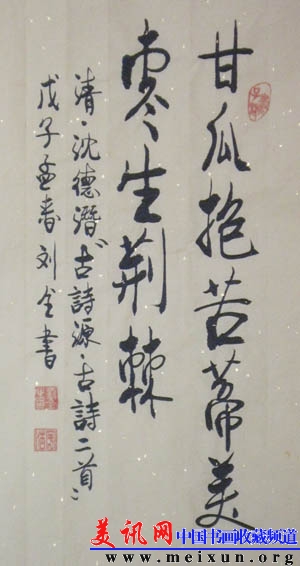 甘瓜抱苦蒂美
枣生荆棘
清、沈德潛“古詩源、古詩二首”
戊子孟春刘全書
美讯网 中国书画收藏频道
www.meixun.org